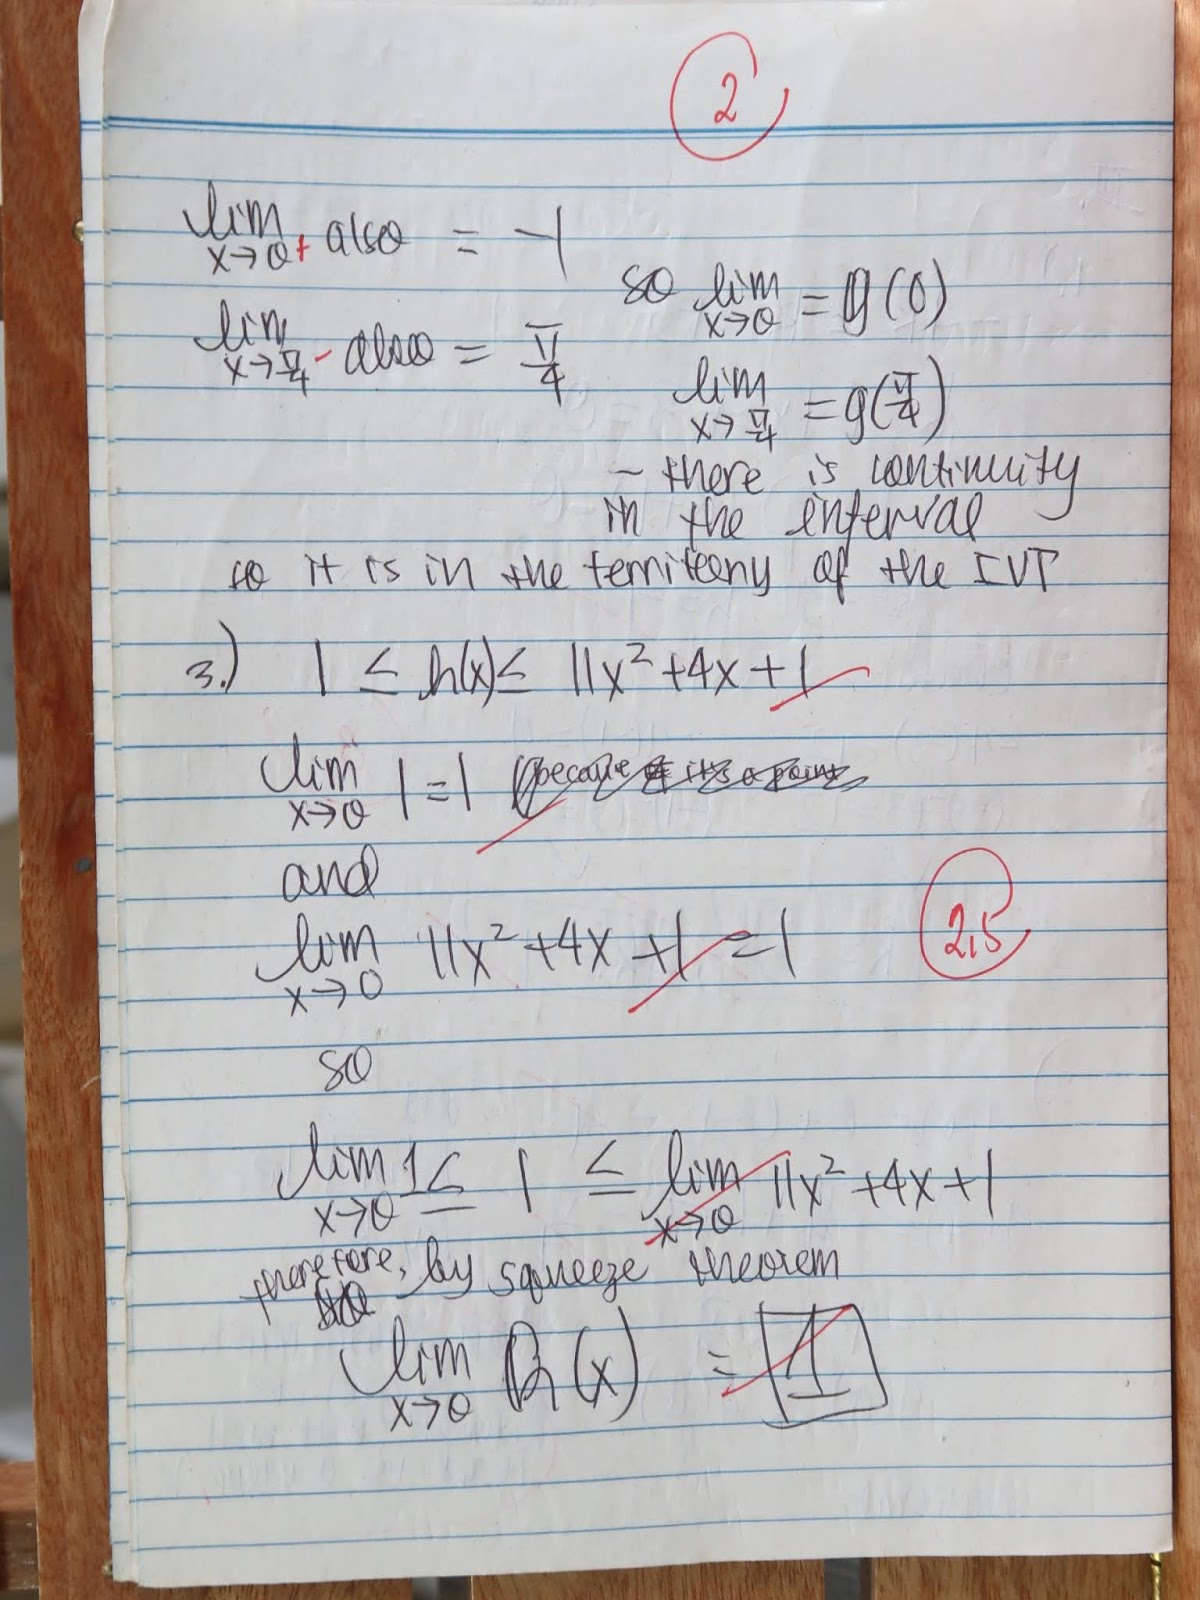 2
lim x→0+ also = -1
lim x→π/4- also = π/4
so lim x→0 = g(0)
lim x→π/4 = g(π/4)
- there is continuity
in the interval
so it is in the territory of the IVT
3.) 1 ≤ h(x) ≤ 11x² + 4x + 1
lim x→0 1 = 1
and
lim x→0 11x² + 4x + 1 = 1
2,5
so
lim x→0 1 ≤ 1 ≤ lim x→0 11x² + 4x + 1
therefore, by squeeze theorem
lim x→0 h(x) = 1